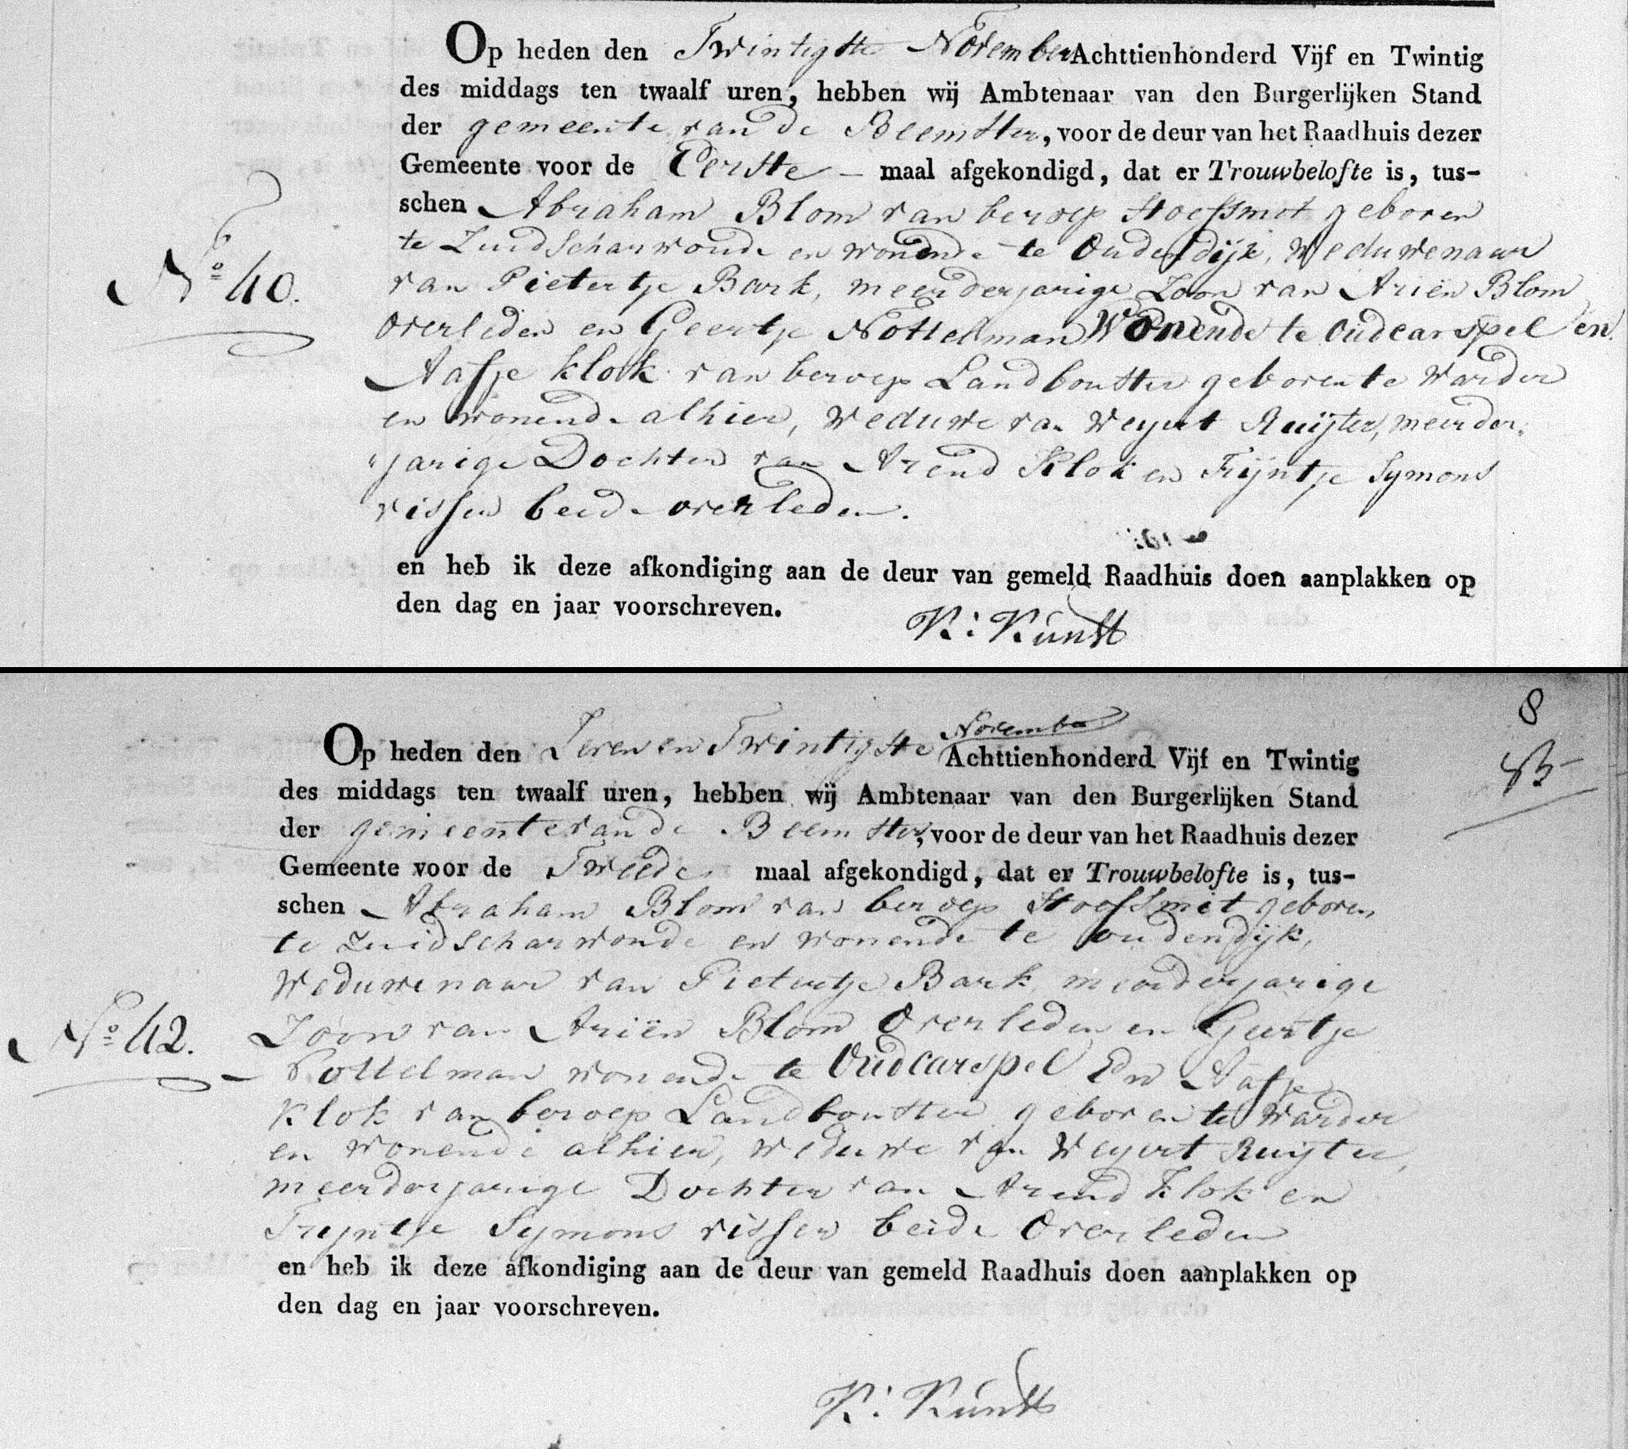 Op heden den Twintigste November Achttienhonderd Vijf en Twintig
des middags ten twaalf uren, hebben wij Ambtenaar van den Burgerlijken Stand
der gemeente van de Beemster, voor de deur van het Raadhuis dezer
Gemeente voor de Eerste maal afgekondigd, dat er Trouwbelofte is, tus-
schen Abraham Blom van beroep Hoefsmit geboren
te Zuidscharwoude en wonende te Oudendijk, Weduwenaar
No 40.
van Pietertje Bark, meerderjarige Zoon van Ariën Blom
Overleden en Geertje Nottelman Wonende te Oudcarspel en
Aafje Klok van beroep Landbouster geboren te Warder
en wonende alhier, Weduwe van Weyert Ruijter, meerder,
jarige Dochter van Arend Klok en Trijntje Symons
vissen beide overleden.
en heb ik deze afkondiging aan de deur van gemeld Raadhuis doen aanplakken op
den dag en jaar voorschreven.
K: Kunst
8
85
Op heden den Zeven en Twintigste November Achttienhonderd Vijf en Twintig
des middags ten twaalf uren, hebben wij Ambtenaar van den Burgerlijken Stand
der gemeente van de Beemster, voor de deur van het Raadhuis dezer
Gemeente voor de Tweede maal afgekondigd, dat er Trouwbelofte is, tus-
schen Abraham Blom van beroep Hoefsmit geboren
te Zuidscharwoude en wonende te Oudendijk,
Weduwenaar van Pietertje Bark, meerderjarige
No 42.
Zoon van Ariën Blom Overleden en Geertje
Nottelman wonende te Oudcarspel En Aafje
Klok van beroep Landbouster geboren te Warder
en wonende alhier, weduwe van Weyert Ruijter,
meerderjarige Dochter van Arend Klok en
Trijntje Symons vissen beide Overleden
en heb ik deze afkondiging aan de deur van gemeld Raadhuis doen aanplakken op
den dag en jaar voorschreven.
K: Kunst